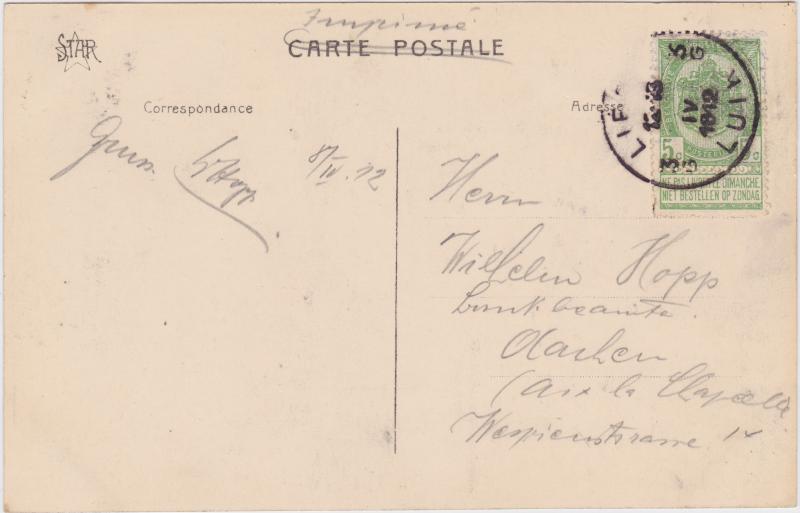 Imprimé
STAR
CARTE POSTALE
Correspondance
Adresse
LIE
3 G
IV
1912
LUIK
3 G
5c
NE PAS LIVRER LE DIMANCHE
NIET BESTELLEN OP ZONDAG
Gruss. WHopp
8/IV. 12
Herrn
Wilhelm Hopp
Bankbeamte
Aachen
(Aix la Chapelle
Wespienstrasse 14